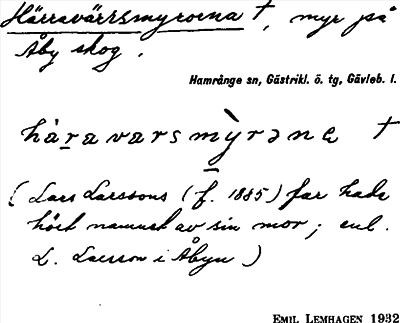 Härravärrsmyrorna †, myr på
Åby skog.
Hamrånge sn, Gästrikl. ö. tg, Gävleb. l.
hàravarsmỳrəne †
(Lars Larssons (f. 1885) far hade
hört namnet av sin mor; enl.
L. Larsson i Åbyn)
EMIL LEMHAGEN 1932